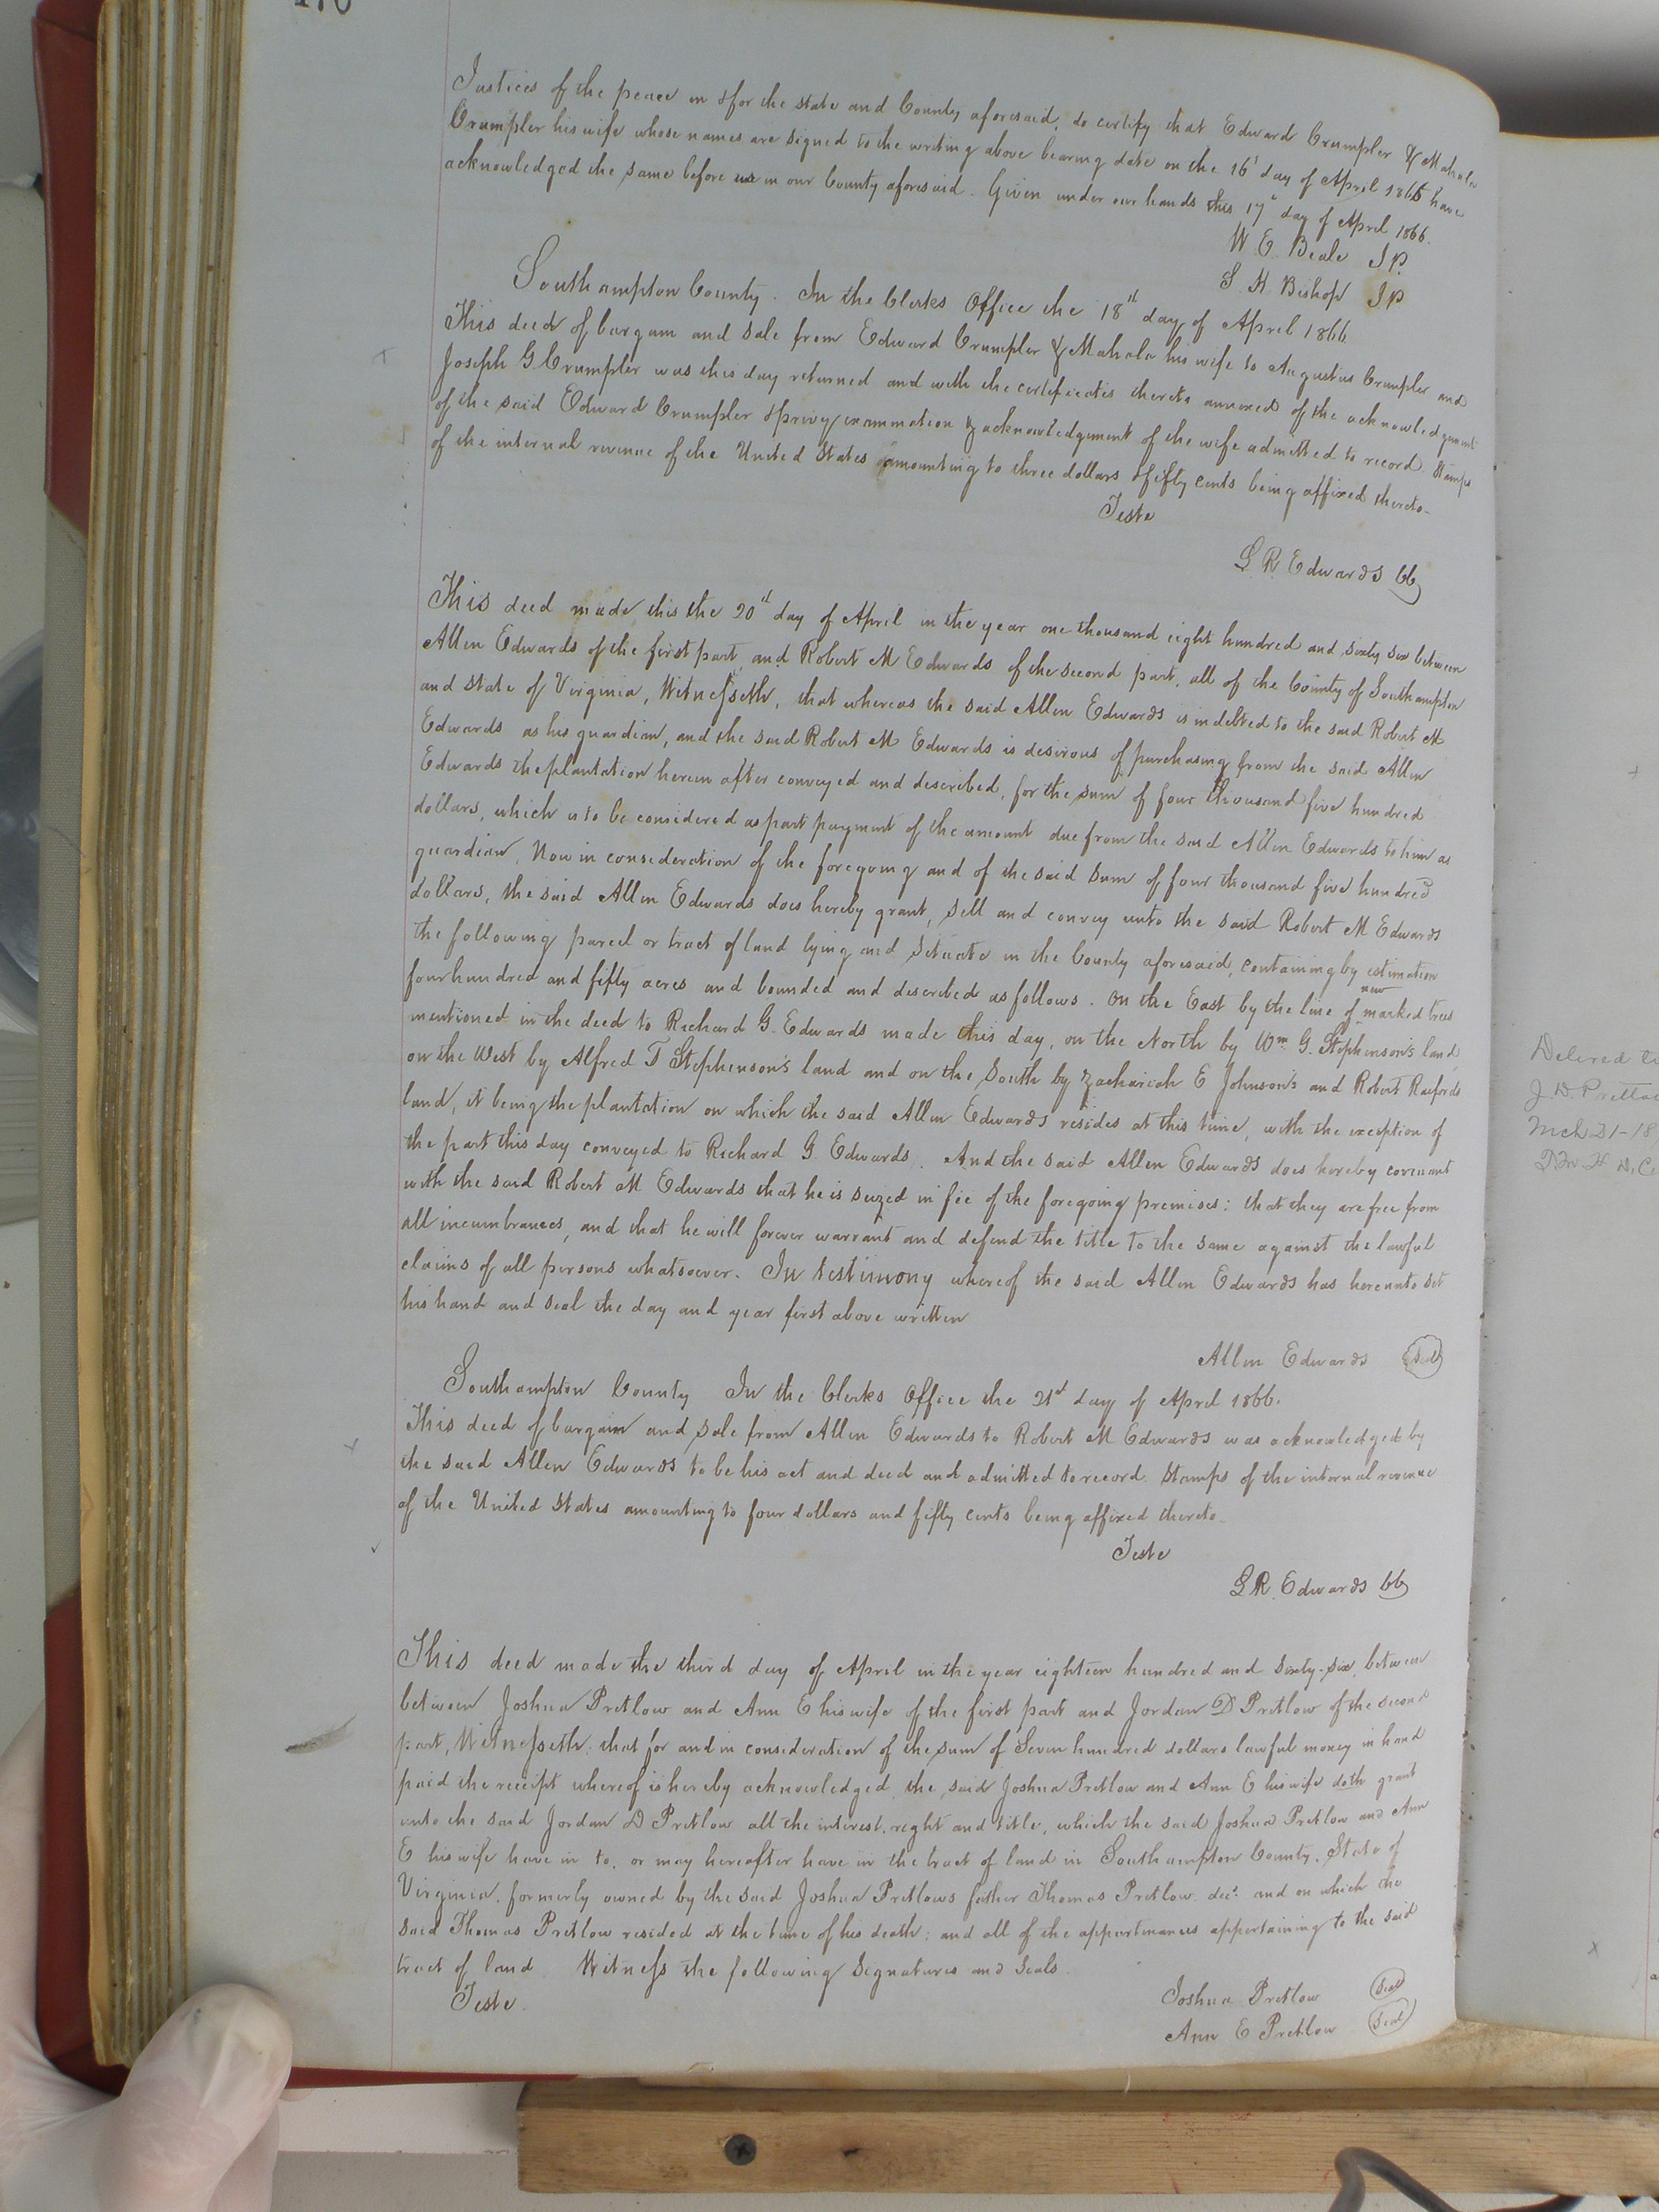 Justices of the peace in & for the state and County aforesaid, do certify that Edward Crumpler & Mahala
Crumpler his wife whose names are signed to the writing above bearing date on the 16' day of April 1866 have
acknowledged the same before us in our County aforesaid. Given under our hands this 17" day of April 1866.
W. E. Beale J.P.
S. H. Bishop J.P.
Southampton County. In the Clerks Office the 18th day of April 1866
This deed of bargain and sale from Edward Crumpler & Mahala his wife to Augustus Crumpler and
Joseph G. Crumpler was this day returned and with the certificates thereto annexed of the acknowledgment
of the said Edward Crumpler & privy examination & acknowledgment of the wife admitted to record. Stamps
of the internal revenue of the United States amounting to three dollars & fifty cents being affixed thereto
Teste
L R Edwards CC
This deed made this the 20th day of April in the year one thousand eight hundred and sixty six between
Allen Edwards of the first part, and Robert M Edwards of the second part, all of the County of Southampton
and State of Virginia, Witnesseth, that whereas the said Allen Edwards is indebted to the said Robert M
Edwards as his guardian, and the said Robert M Edwards is desirous of purchasing from the said Allen
Edwards the plantation herein after conveyed and described, for the sum of four thousand five hundred
dollars, which is to be considered as part payment of the amount due from the said Allen Edwards to him as
guardian, Now in consideration of the foregoing and of the said sum of four thousand five hundred
dollars, the said Allen Edwards does hereby grant, sell and convey unto the said Robert M Edwards
the following parcel or tract of land lying and situate in the County aforesaid, containing by estimation
four hundred and fifty acres and bounded and described as follows. On the East by the line of new marked trees
mentioned in the deed to Richard G. Edwards made this day, on the North by Wm G. Stephenson's land
on the West by Alfred T Stephenson's land and on the South by Zachariah E Johnson's and Robert Raiford's
land, it being the plantation on which the said Allen Edwards resides at this time, with the exception of
the part this day conveyed to Richard G. Edwards. And the said Allen Edwards does hereby covenant
with the said Robert M Edwards that he is seized in fee of the foregoing premises: that they are free from
all incumbrances, and that he will forever warrant and defend the title to the same against the lawful
claims of all persons whatsoever. In testimony whereof the said Allen Edwards has hereunto set
his hand and seal the day and year first above written
Allen Edwards (Seal)
Southampton County In the Clerks Office the 21st day of April 1866.
This deed of bargain and sale from Allen Edwards to Robert M Edwards was acknowledged by
the said Allen Edwards to be his act and deed and admitted to record. Stamps of the internal revenue
of the United States amounting to four dollars and fifty cents being affixed thereto
Teste
L R. Edwards CC
This deed made the third day of April in the year eighteen hundred and sixty-six, between
between Joshua Pretlow and Ann E his wife of the first part and Jordan D Pretlow of the second
part, Witnesseth: that for and in consideration of the sum of Seven hundred dollars lawful money in hand
paid the receipt whereof is hereby acknowledged the said Joshua Pretlow and Ann E his wife doth grant
unto the said Jordan D Pretlow all the interest, right and title, which the said Joshua Pretlow and Ann
E his wife have in to, or may hereafter have in the tract of land in Southampton County, State of
Virginia, formerly owned by the said Joshua Pretlows father Thomas Pretlow decd. and on which the
said Thomas Pretlow resided at the time of his death; and all of the appurtenances appertaining to the said
tract of land Witness the following signatures and seals.
Teste.
Joshua Pretlow (Seal)
Ann E Pretlow (Seal)
Delivered to
J. D. Pretlow
Mch 21-18